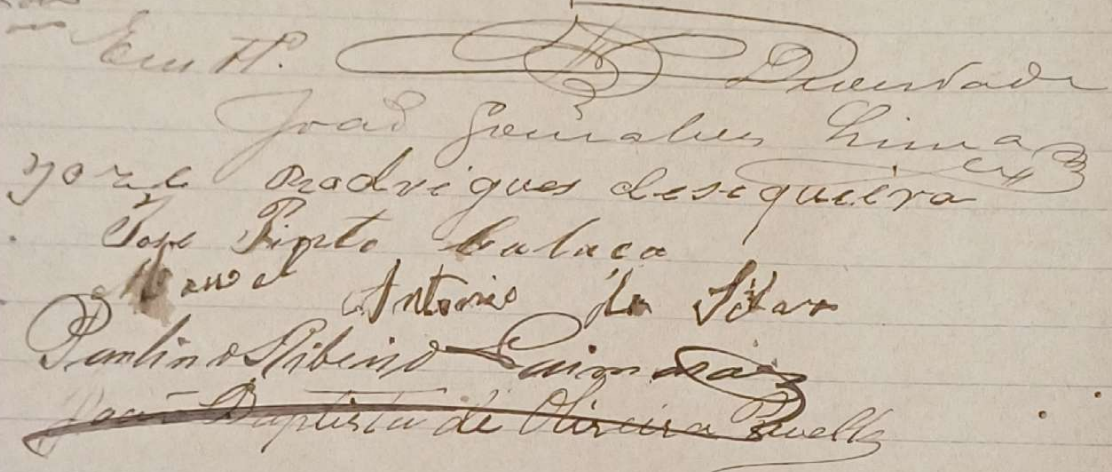 Em tt.º
João Gonsalves Lima
Rodrigues desiqueira
José Pinto Calaça
Manoel Antonio da Silva
Paulino Ribeiro Guimarães
João Baptista de Oliveira